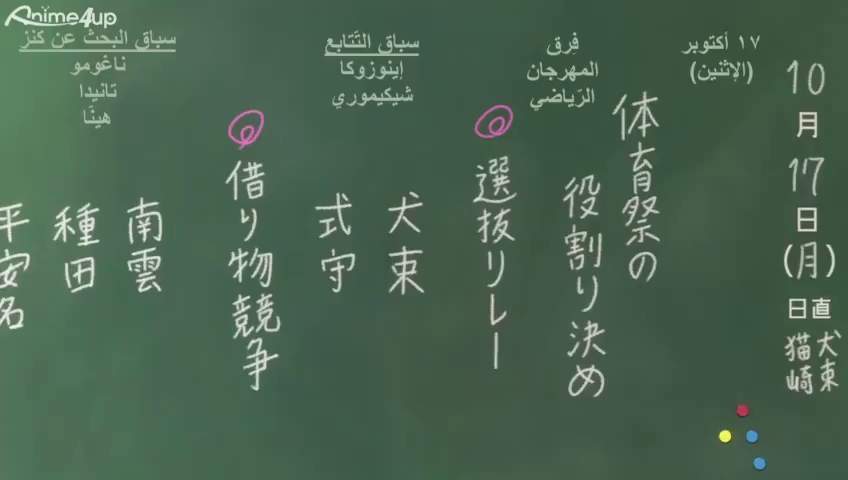 Anime4up
١٧ أكتوبر
(الإثنين)
فِرق
المهرجان
الرّياضي
سباق التّتابع
إينوزوكا
شيكيموري
سباق البحث عن كنز
ناغومو
تانيدا
هينّا
10月17日(月)
日直
犬束
猫崎
体育祭の
役割り決め
選抜リレー
犬束
式守
借り物競争
南雲
種田
平安名